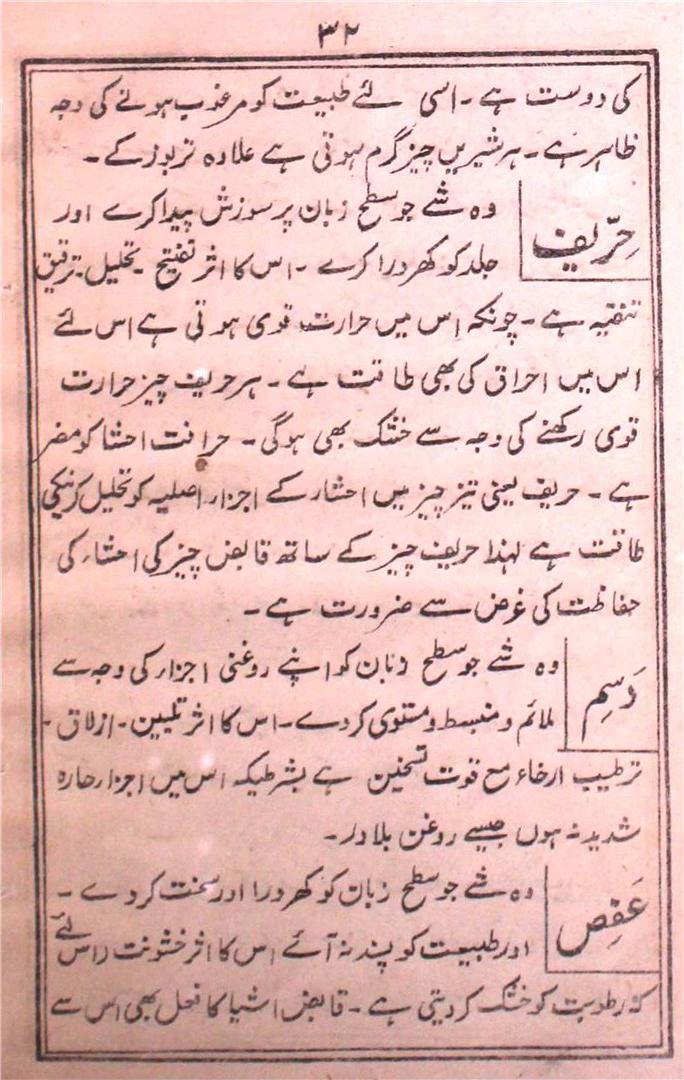 ۳۲
کی دوست ہے۔ اسی لئے طبیعت کو مرغوب ہونے کی وجہ
ظاہر ہے۔ ہر شیریں چیز گرم ہوتی ہے علاوہ تربوز کے۔
حِرّیف
وہ شے جو سطح زبان پر سوزش پیدا کرے اور
جلد کو کھردرا کرے ۔ اس کا اثر تفتیح ۔ تحلیل۔ ترقیق
تنقیہ ہے۔ چونکہ اس میں حرارت قوی ہوتی ہے اس لئے
اس میں احراق کی بھی طاقت ہے۔ ہر حریف چیز حرارت
قوی رکھنے کی وجہ سے خشک بھی ہوگی۔ حرافت احشا کو مضر
ہے ۔ حریف یعنی تیز چیز میں احشار کے اجزار اصلیہ کو تحلیل کرنیکی
طاقت ہے لہذا حریف چیز کے ساتھ قابض چیز کی احشاء کی
حفاظت کی غرض سے ضرورت ہے۔
دَسِم
وہ شے جو سطح زبان کو اپنے روغنی اجزار کی وجہ سے
ملائم و منبسط و مستوی کردے۔ اس کا اثر تلیین۔ ازلاق۔
ترطیب ارخاء مع قوت تسخین ہے بشرطیکہ اس میں اجزار حارہ
شدید نہ ہوں جیسے روغن بلادر۔
عَفِص
وہ شے جو سطح زبان کو کھردرا اور سخت کردے ۔
اور طبیعت کو پسند نہ آئے اس کا اثر خشونت (اس لئے
کہ رطوبت کو خشک کردیتی ہے۔ قابض اشیا کا فعل بھی اس سے